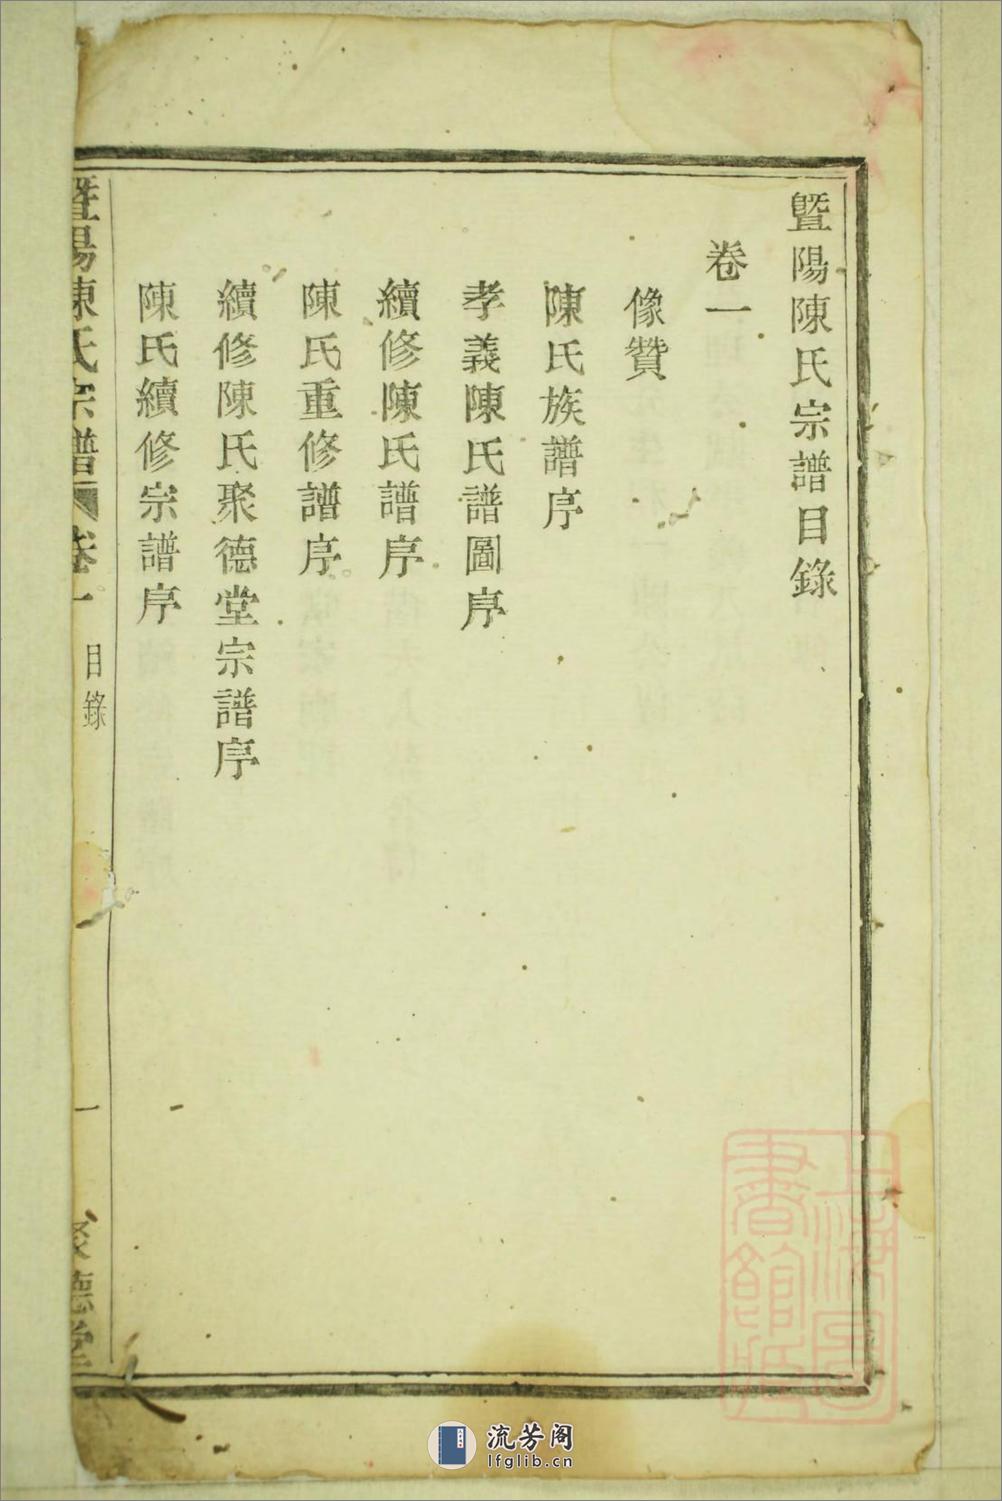 暨陽陳氏宗譜目錄
卷一
像贊
陳氏族譜序
孝義陳氏譜圖序
續修陳氏譜序
陳氏重修譜序
續修陳氏聚德堂宗譜序
陳氏續修宗譜序
暨陽陳氏宗譜 卷一 目錄 一 聚德堂
上海圖書館藏
流芳阁
lfglib.cn